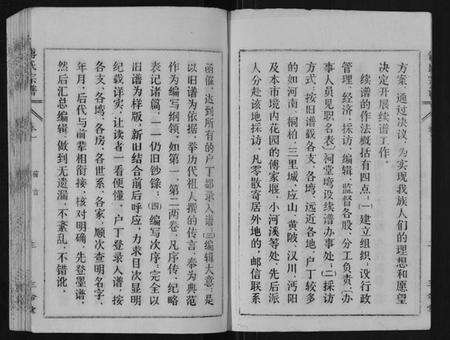 方案，通过决议，为实现我族人们的理想和愿望
决定开展续谱工作。
续谱的作法概括有四点：㈠建立组织，设行政
管理、经济、採访、编辑、监督各股，分工负责，（办
事人员见职名表）祠堂墕设续谱办事处，㈡採访
方式，按旧谱载各支、各塆，远近各地，户丁较多
的如河南，桐柏，三里城，应山，黄陂，汉川，沔阳
及本市境内花园的傅家堰，小河溪等处，先后派
人分赴该地採访，凡零散寄居外地的，邮信联系
函催，达到所有的户丁都录入谱。㈢编辑大意，是
以旧谱为依据，举历代祖人撰修的传言，奉为典范
作为编写纲领，如第一、第二两卷，凡序传，纪略
表记诸篇，一一仍旧钞錄，㈣编写次序，完全以
旧谱为样版，新旧结合前后呼应，力求目次显明
纪载详实，让读者一看便懂，户丁登录入谱，按
各支、各塆、各房、各世系、各家，顺次查明名字，
年月，后代与前辈相衔接，核对明确，先登墨谱，
然后汇总编辑，做到无遗漏，不紊乱，不错讹，